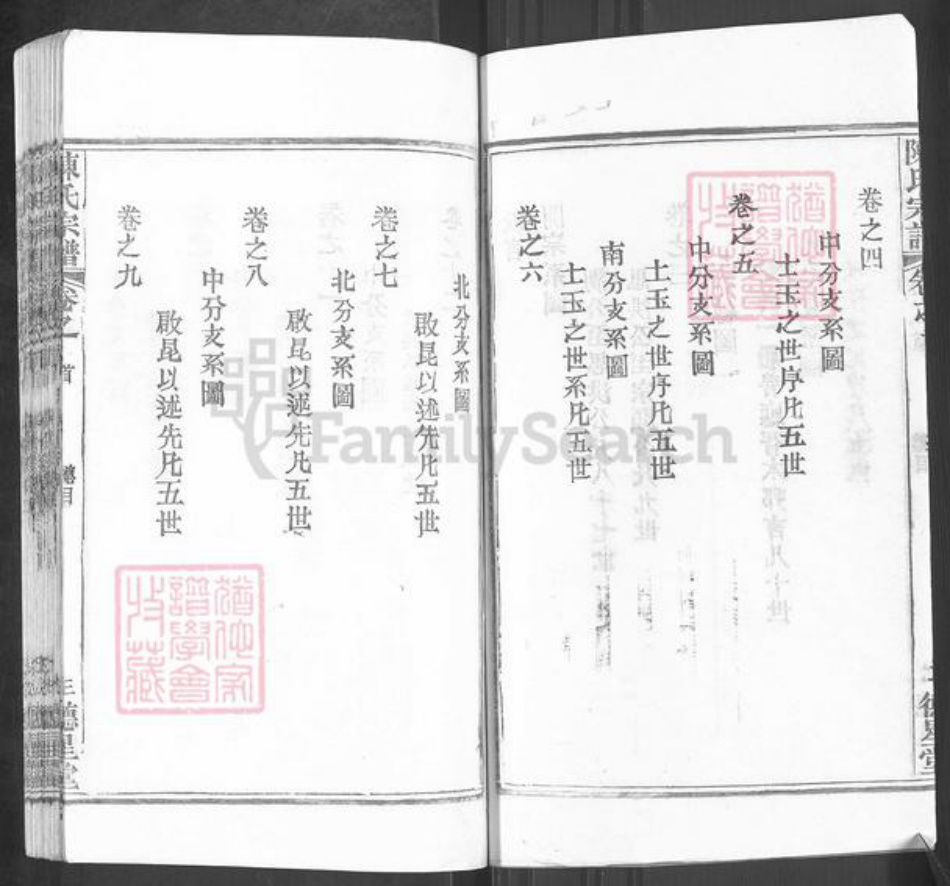 陳氏宗譜
卷之四
中分支系圖
士玉之世序凡五世
卷之五
中分支系圖
士玉之世序凡五世
南分支系圖
士玉之世系凡五世
卷之六
北分支系圖
啟昆以述先凡五世
卷之七
北分支系圖
啟昆以述先凡五世
卷之八
中分支系圖
啟昆以述先凡五世
卷之九
陳氏宗譜
首
總目
三
德星堂
譜學會
收藏
FamilySearch